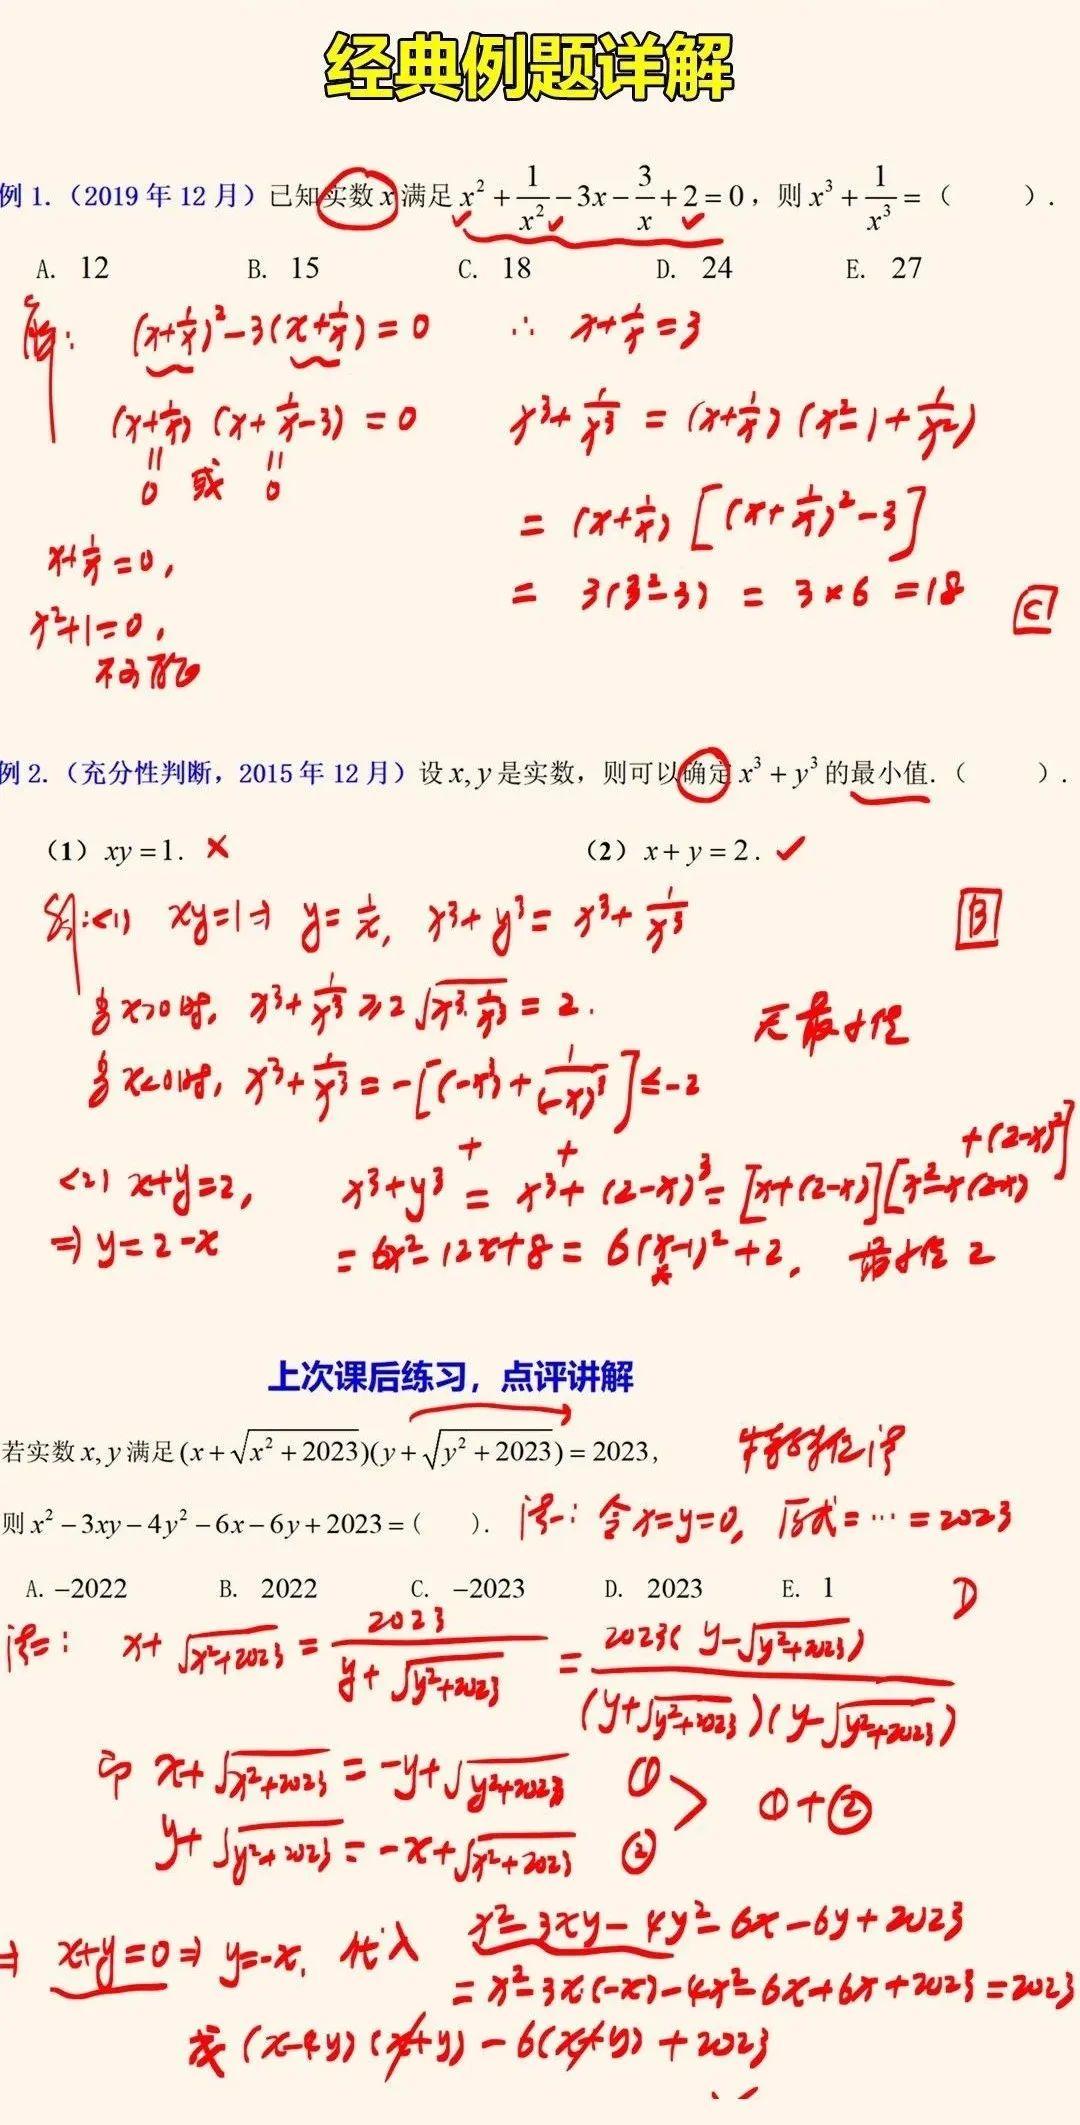 经典例题详解
例 1.（2019 年 12 月）已知实数 x 满足 x² + 1/x² − 3x − 3/x + 2 = 0，则 x³ + 1/x³ =（ ）.
A. 12 B. 15 C. 18 D. 24 E. 27
解: (x+1/x)² − 3(x+1/x) = 0 ∴ x+1/x = 3
(x+1/x)(x+1/x−3) = 0 x³+1/x³ = (x+1/x)(x²−1+1/x²)
0 或 0
= (x+1/x)[(x+1/x)²−3]
x+1/x=0,
= 3(3²−3) = 3×6 = 18 C
x²+1=0,
不可能
例 2.（充分性判断，2015 年 12 月）设 x, y 是实数，则可以确定 x³ + y³ 的最小值.（ ）.
（1）xy = 1. × （2）x + y = 2. ✓
解:<1> xy=1⇒ y=1/x, x³+y³= x³+1/x³ B
当x>0时, x³+1/x³ ≥ 2√(x³·1/x³) = 2. 无最小值
当x<0时, x³+1/x³ = −[(−x)³+1/(−x)³] ≤ −2
<2> x+y=2, x³+y³ = x³+(2−x)³ = [x+(2−x)][x²−x(2−x)+(2−x)²]
⇒ y=2−x = 6x²−12x+8 = 6(x−1)²+2, 最小值 2
上次课后练习，点评讲解
若实数 x, y 满足 (x+√(x²+2023))(y+√(y²+2023)) = 2023, 特殊值法
则 x² − 3xy − 4y² − 6x − 6y + 2023 = ( ). 法一: 令x=y=0, 原式=…=2023
A. −2022 B. 2022 C. −2023 D. 2023 E. 1 D
法二: x+√(x²+2023) = 2023/(y+√(y²+2023)) = 2023(y−√(y²+2023))/((y+√(y²+2023))(y−√(y²+2023)))
即 x+√(x²+2023) = −y+√(y²+2023) ①
y+√(y²+2023) = −x+√(x²+2023) ② ①+②
⇒ x+y=0 ⇒ y=−x, 代入 x²−3xy−4y²−6x−6y+2023
= x²−3x(−x)−4x²−6x+6x+2023=2023
或 (x−4y)(x+y)−6(x+y)+2023